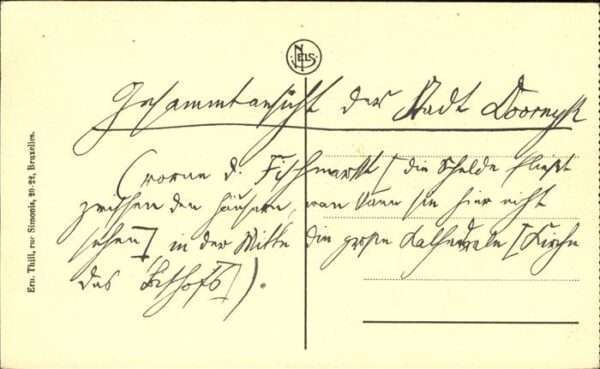 NELS
Gesammtansicht der Stadt Doornyk
(vorne d. Fischmarkt [die Schelde fließt
zwischen den Häusern, man kann sie hier nicht
sehen] in der Mitte die große Kathedrale [Kirche
des Bischofs]).
Ern. Thill, rue Simonis, 20-22, Bruxelles.